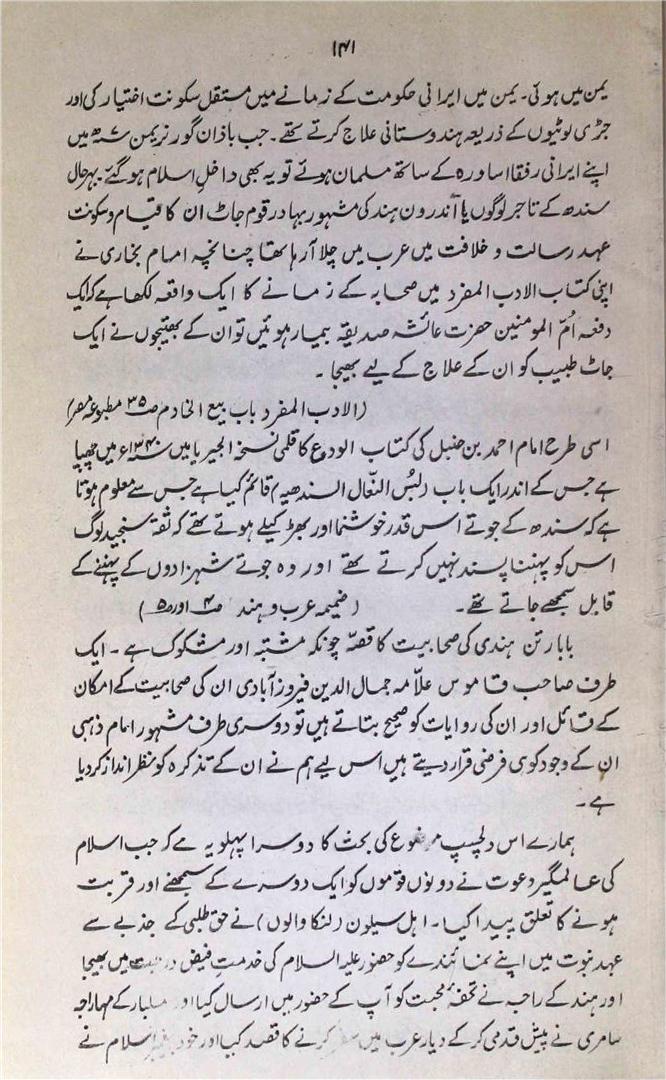 ۱۴۱
یمن میں ہوئی۔ یمن میں ایرانی حکومت کے زمانے میں مستقل سکونت اختیار کی اور
جڑی بوٹیوں کے ذریعہ ہندوستانی علاج کرتے تھے۔ جب باذان گورنر یمن ۷ھ میں
اپنے ایرانی رفقا اساورہ کے ساتھ مسلمان ہوئے تو یہ بھی داخل اسلام ہو گئے بہرحال
سندھ کے تاجر لوگوں یا اندرون ہند کی مشہور بہادر قوم جاٹ ان کا قیام و سکونت
عہد رسالت و خلافت میں عرب میں چلا آرہا تھا چنانچہ امام بخاری نے
اپنی کتاب الادب المفرد میں صحابہ کے زمانے کا ایک واقعہ لکھا ہے کہ ایک
دفعہ اُمّ المومنین حضرت عائشہ صدیقہ بیمار ہوئیں تو ان کے بھتیجوں نے ایک
جاٹ طبیب کو ان کے علاج کے لیے بھیجا ۔
(الادب المفرد باب بیع الخادم ص ۳۵ مطبوعہ مصر)
اسی طرح امام احمد بن حنبل کی کتاب الودع کا قلمی نسخہ الجیریا میں ۱۳۴۰ء میں چھپا
ہے جس کے اندر ایک باب (لبُس النعّال السندھیہ) قائم کیا ہے جس سے معلوم ہوتا
ہے کہ سندھ کے جوتے اس قدر خوشنما اور بھڑکیلے ہوتے تھے کہ ثقہ سنجید لوگ
اس کو پہننا پسند نہیں کرتے تھے اور وہ جوتے شہزادوں کے پہننے کے
قابل سمجھے جاتے تھے۔ (ضمیمہ عرب و ہند ص ۴ اور ۵)
بابا رتن ہندی کی صحابیت کا قصّہ چونکہ مشتبہ اور مشکوک ہے ۔ ایک
طرف صاحب قاموس علاّمہ جمال الدین فیروز آبادی ان کی صحابیت کے امکان
کے قائل اور ان کی روایات کو صحیح بتاتے ہیں تو دوسری طرف مشہور امام ذہبی
ان کے وجود کو ہی فرضی قرار دیتے ہیں اس لیے ہم نے ان کے تذکرہ کو نظر انداز کر دیا
ہے ۔
ہمارے اس دلچسپ موضوع کی بحث کا دوسرا پہلو یہ ہے کہ جب اسلام
کی عالمگیر دعوت نے دونوں قوموں کو ایک دوسرے کے سمجھنے اور قربت
ہونے کا تعلق پیدا کیا۔ اہل سیلون (لنکا والوں) نے حق طلبی کے جذبے سے
عہد نبوت میں اپنے نمائندے کو حضور علیہ السلام کی خدمت فیض میں بھیجا
اور ہند کے راجہ نے تحفۂ محبت کو آپ کے حضور میں ارسال کیا اور ملیبار کے مہاراجہ
سامری نے پیش قدمی کر کے دیار عرب میں سفر کرنے کا قصد کیا اور خود اسلام نے